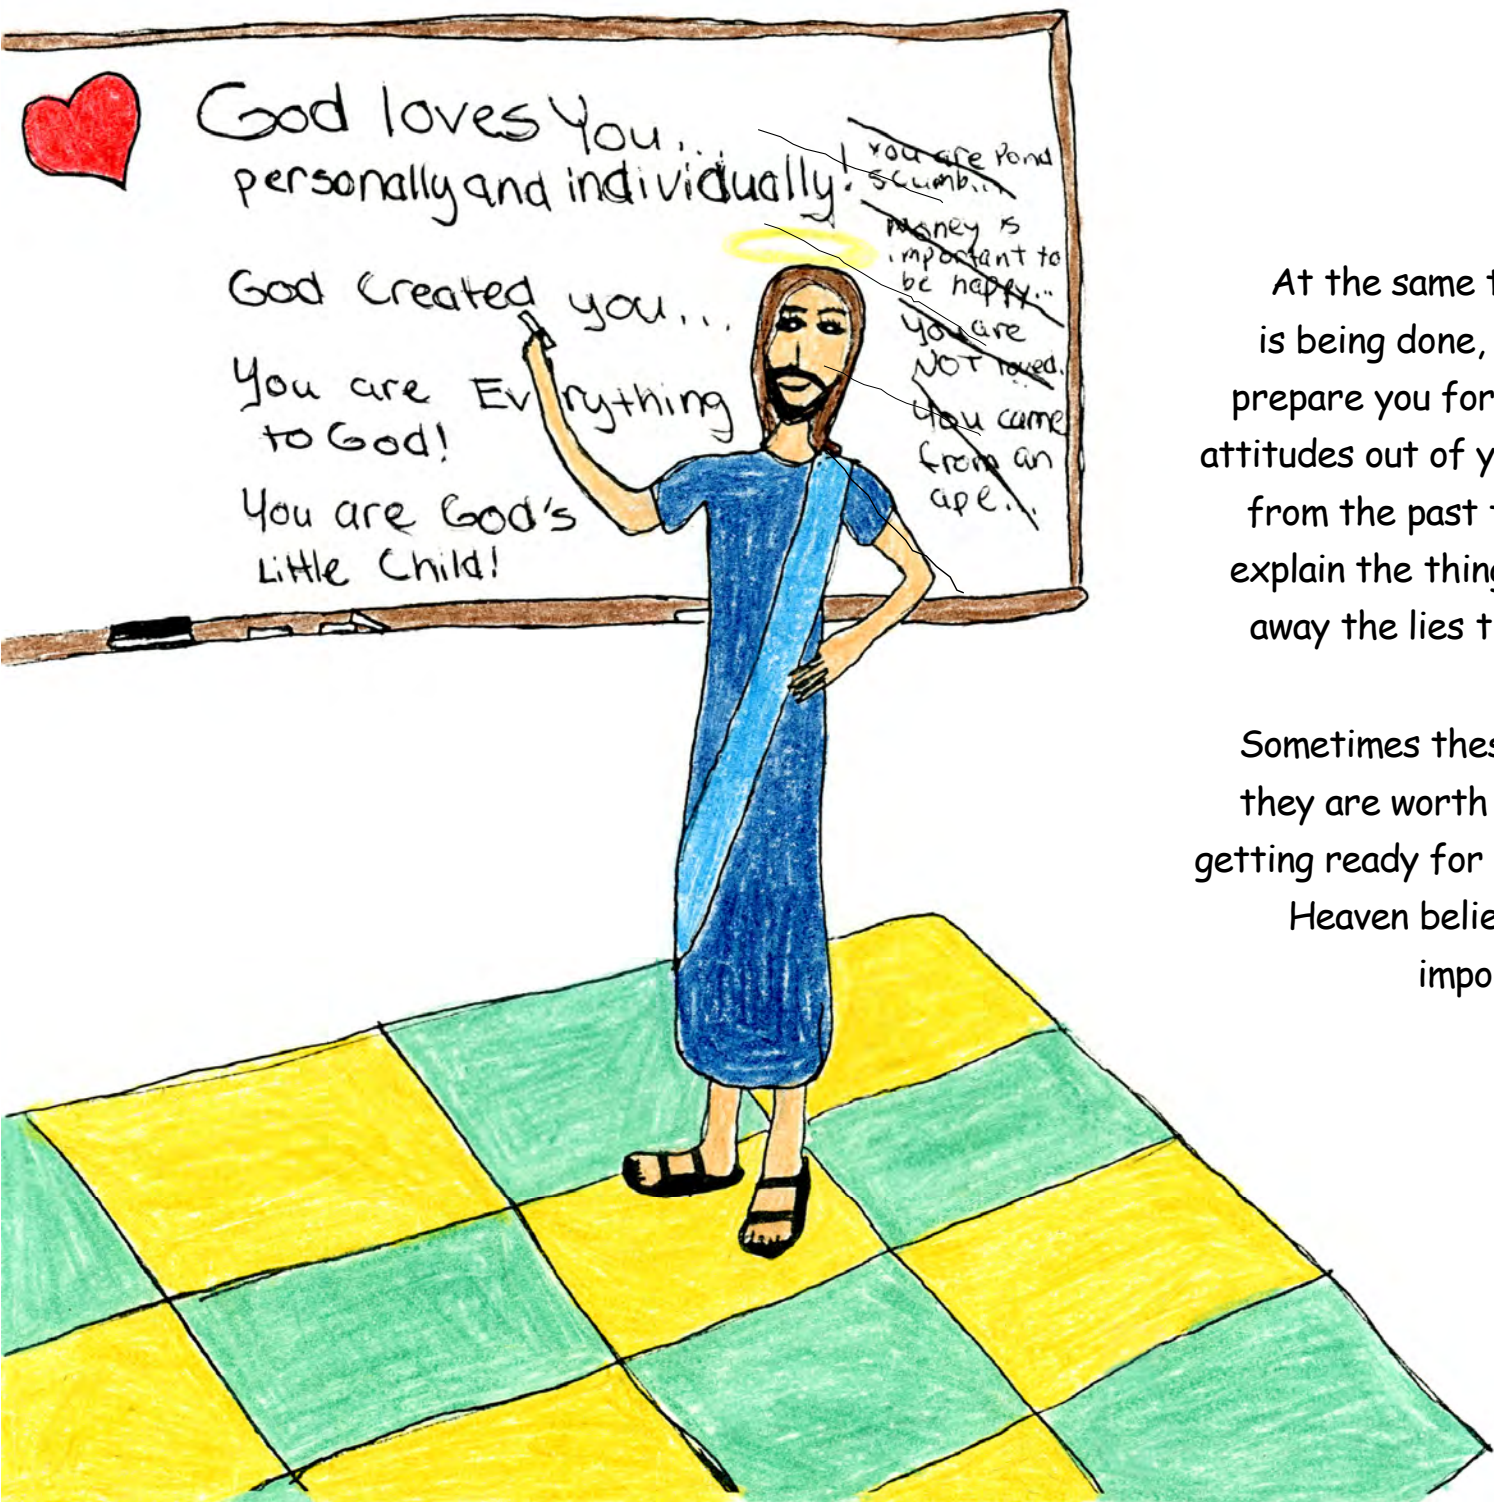 God loves You...
personally and individually!
God Created you...
You are Ev rything
to God!
You are God's
Little Child!
You are Pond
scumb...
money is
important to
be happy...
You are
NOT loved.
You came
from an
ape...
At the same t
is being done,
prepare you for
attitudes out of y
from the past t
explain the thing
away the lies t
Sometimes thes
they are worth
getting ready for
Heaven belie
impo